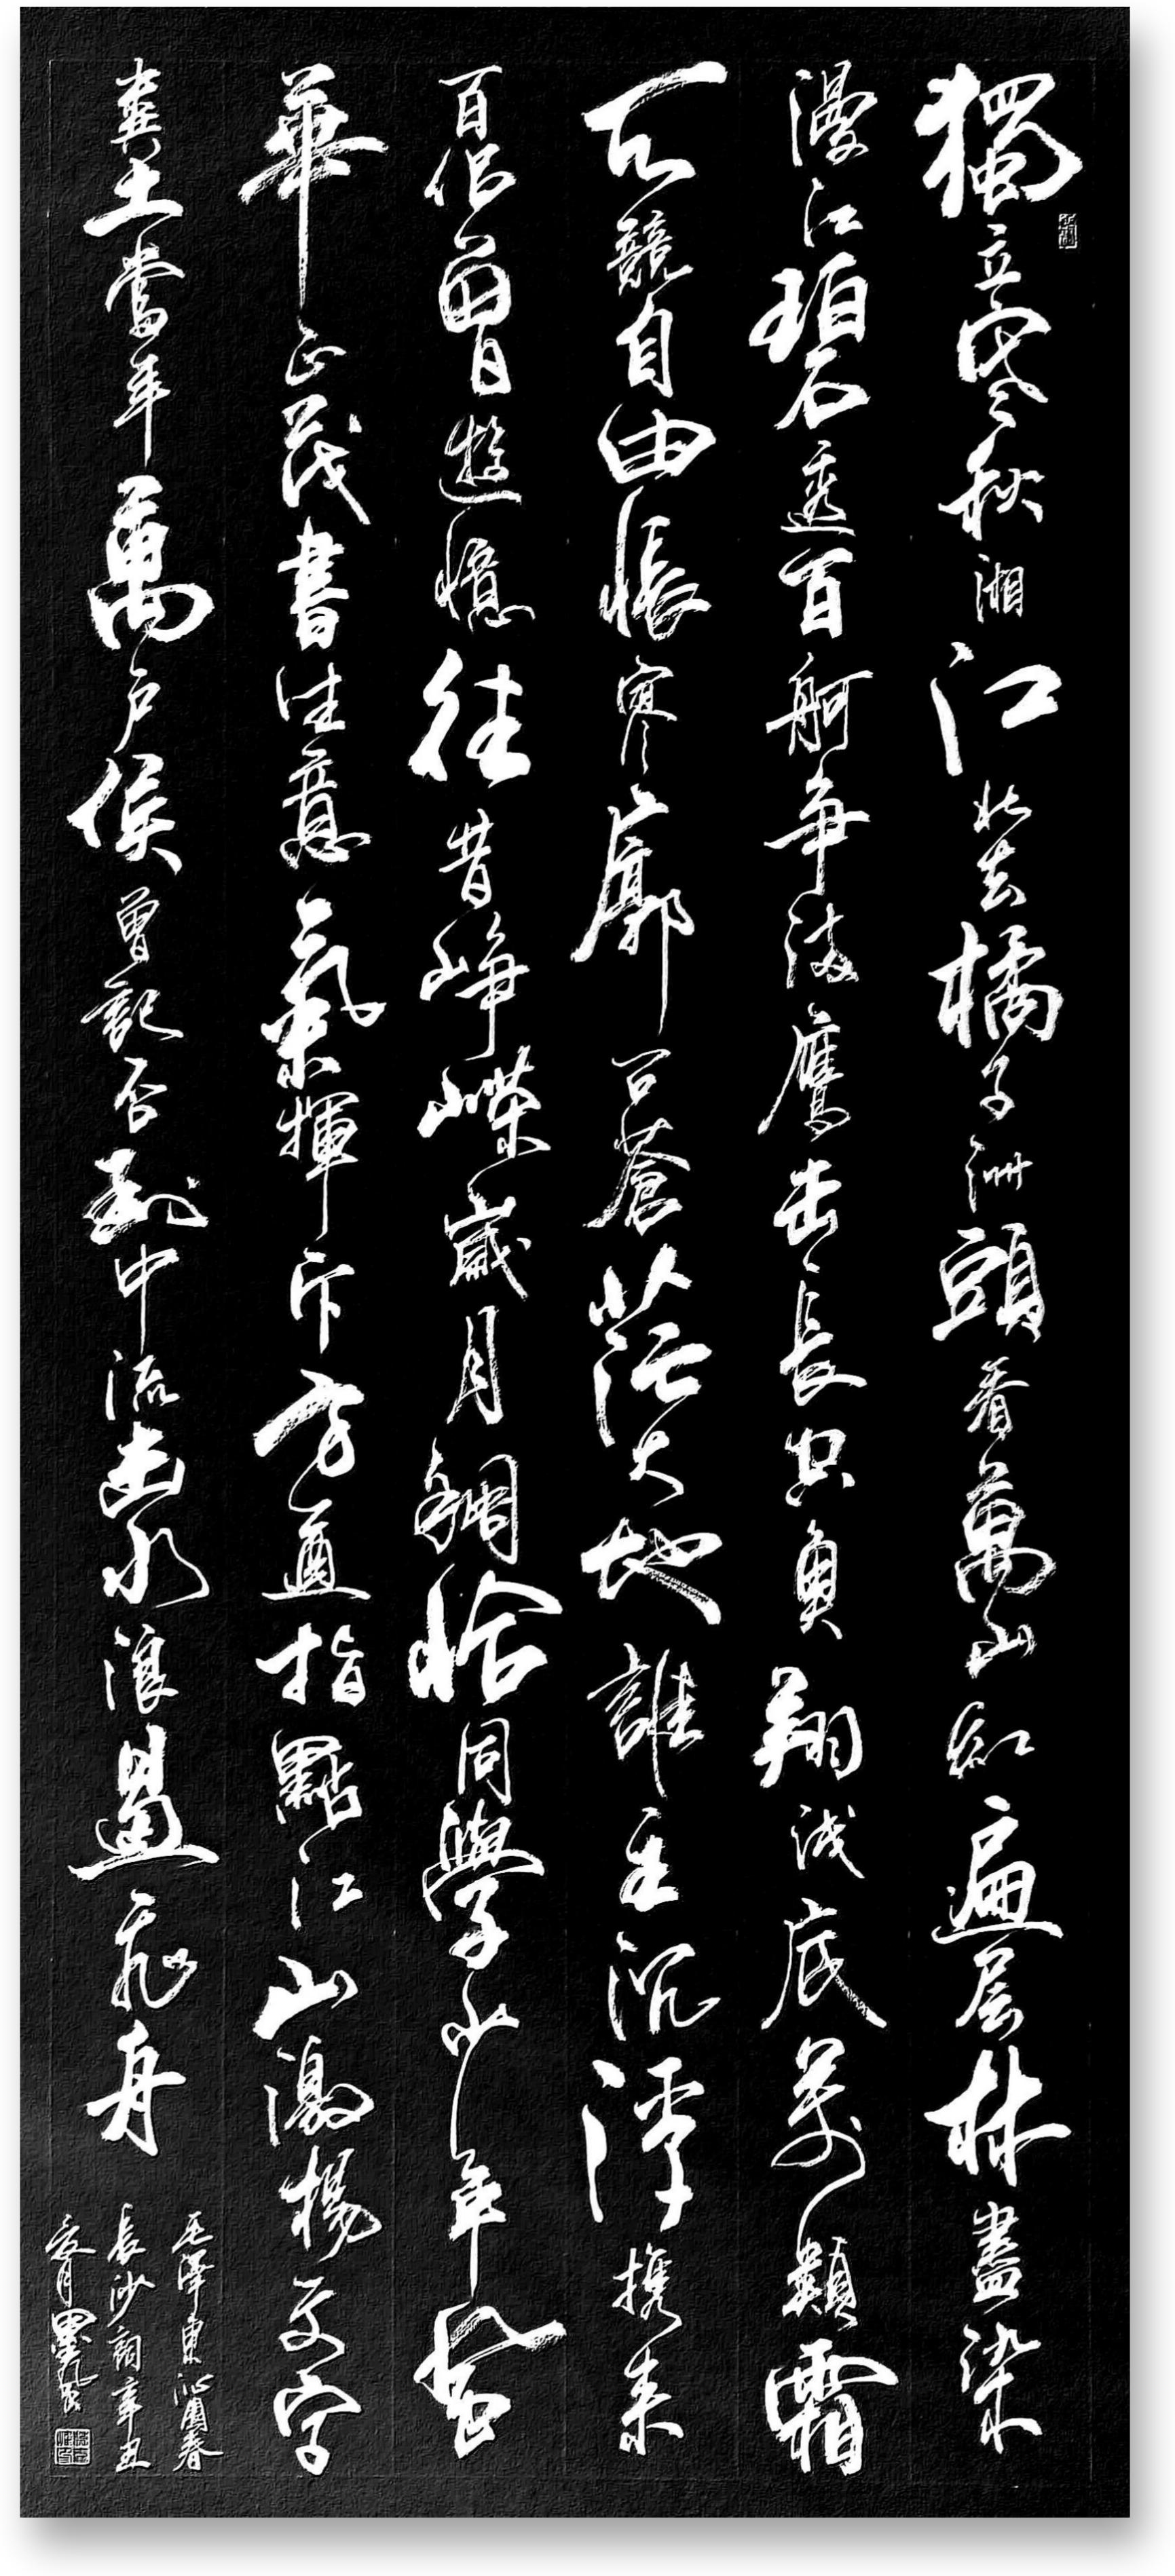 獨立寒秋湘江北去橘子洲頭看萬山紅遍层林盡染
漫江碧透百舸争流鷹击長空魚翔浅底万類霜
天競自由悵寥廓問蒼茫大地誰主沉浮携来
百侣曾遊憶往昔峥嶸歲月稠恰同學少年風
華正茂書生意氣揮斥方遒指點江山激揚文字
糞土當年萬户侯曾記否到中流击水浪遏飛舟
毛澤東沁園春
長沙詞辛丑
夏月墨